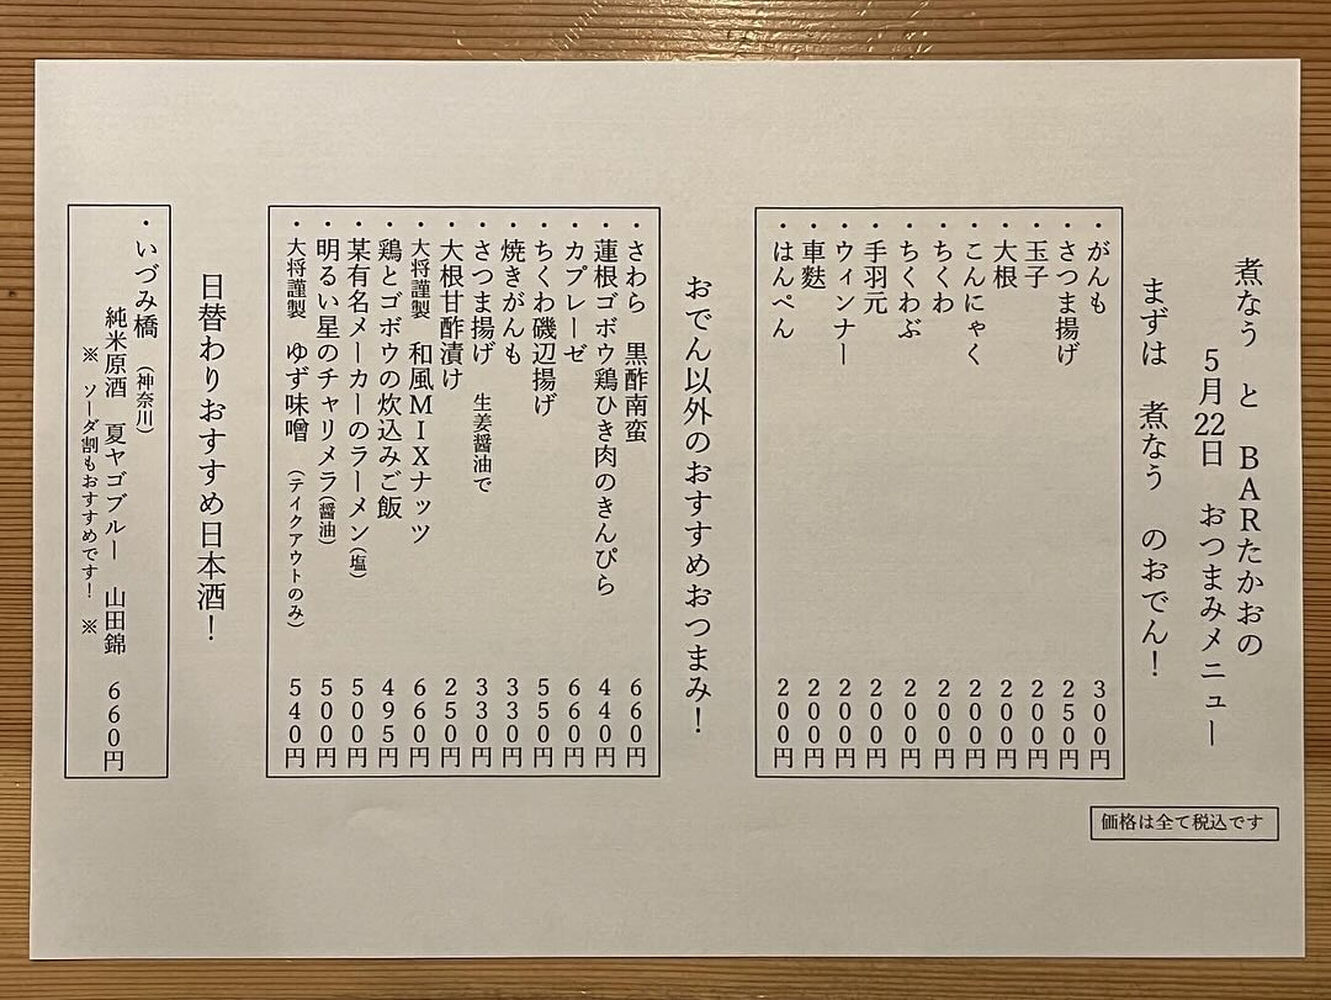 煮なう と BARたかおの
5月22日 おつまみメニュー
まずは 煮なう のおでん！
・がんも 300円
・さつま揚げ 250円
・玉子 200円
・大根 200円
・こんにゃく 200円
・ちくわ 200円
・ちくわぶ 200円
・手羽元 200円
・ウィンナー 200円
・車麩 200円
・はんぺん 200円
価格は全て税込です
おでん以外のおすすめおつまみ！
・さわら 黒酢南蛮 660円
・蓮根ゴボウ鶏ひき肉のきんぴら 440円
・カプレーゼ 660円
・ちくわ磯辺揚げ 550円
・焼きがんも 330円
・さつま揚げ 生姜醤油で 330円
・大根甘酢漬け 250円
・大将謹製 和風MIXナッツ 660円
・鶏とゴボウの炊込みご飯 495円
・某有名メーカーのラーメン(塩) 500円
・明るい星のチャリメラ(醤油) 500円
・大将謹製 ゆず味噌 (テイクアウトのみ) 540円
日替わりおすすめ日本酒！
・いづみ橋 (神奈川)
純米原酒 夏ヤゴブルー 山田錦 660円
※ ソーダ割もおすすめです！ ※